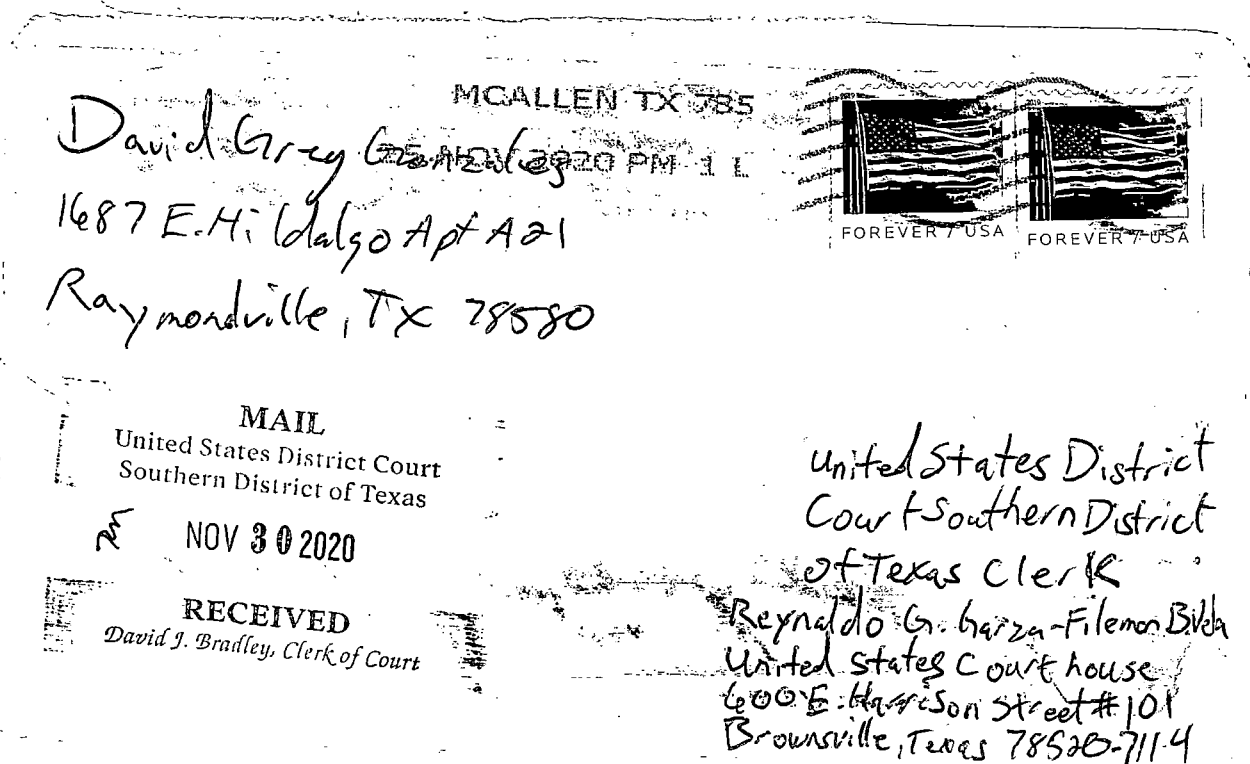 MCALLEN TX 785
25 NOV 2020 PM 1 L
David Greg Gonzales
1687 E. Hildalgo Apt A21
Raymondville, TX 78580
FOREVER / USA
FOREVER / USA
MAIL
United States District Court
Southern District of Texas
NOV 30 2020
RECEIVED
David J. Bradley, Clerk of Court
United States District
Court Southern District
of Texas Clerk
Reynaldo G. Garza-Filemon B. Vela
United States Court house
600 E. Harrison Street #101
Brownsville, Texas 78520-7114